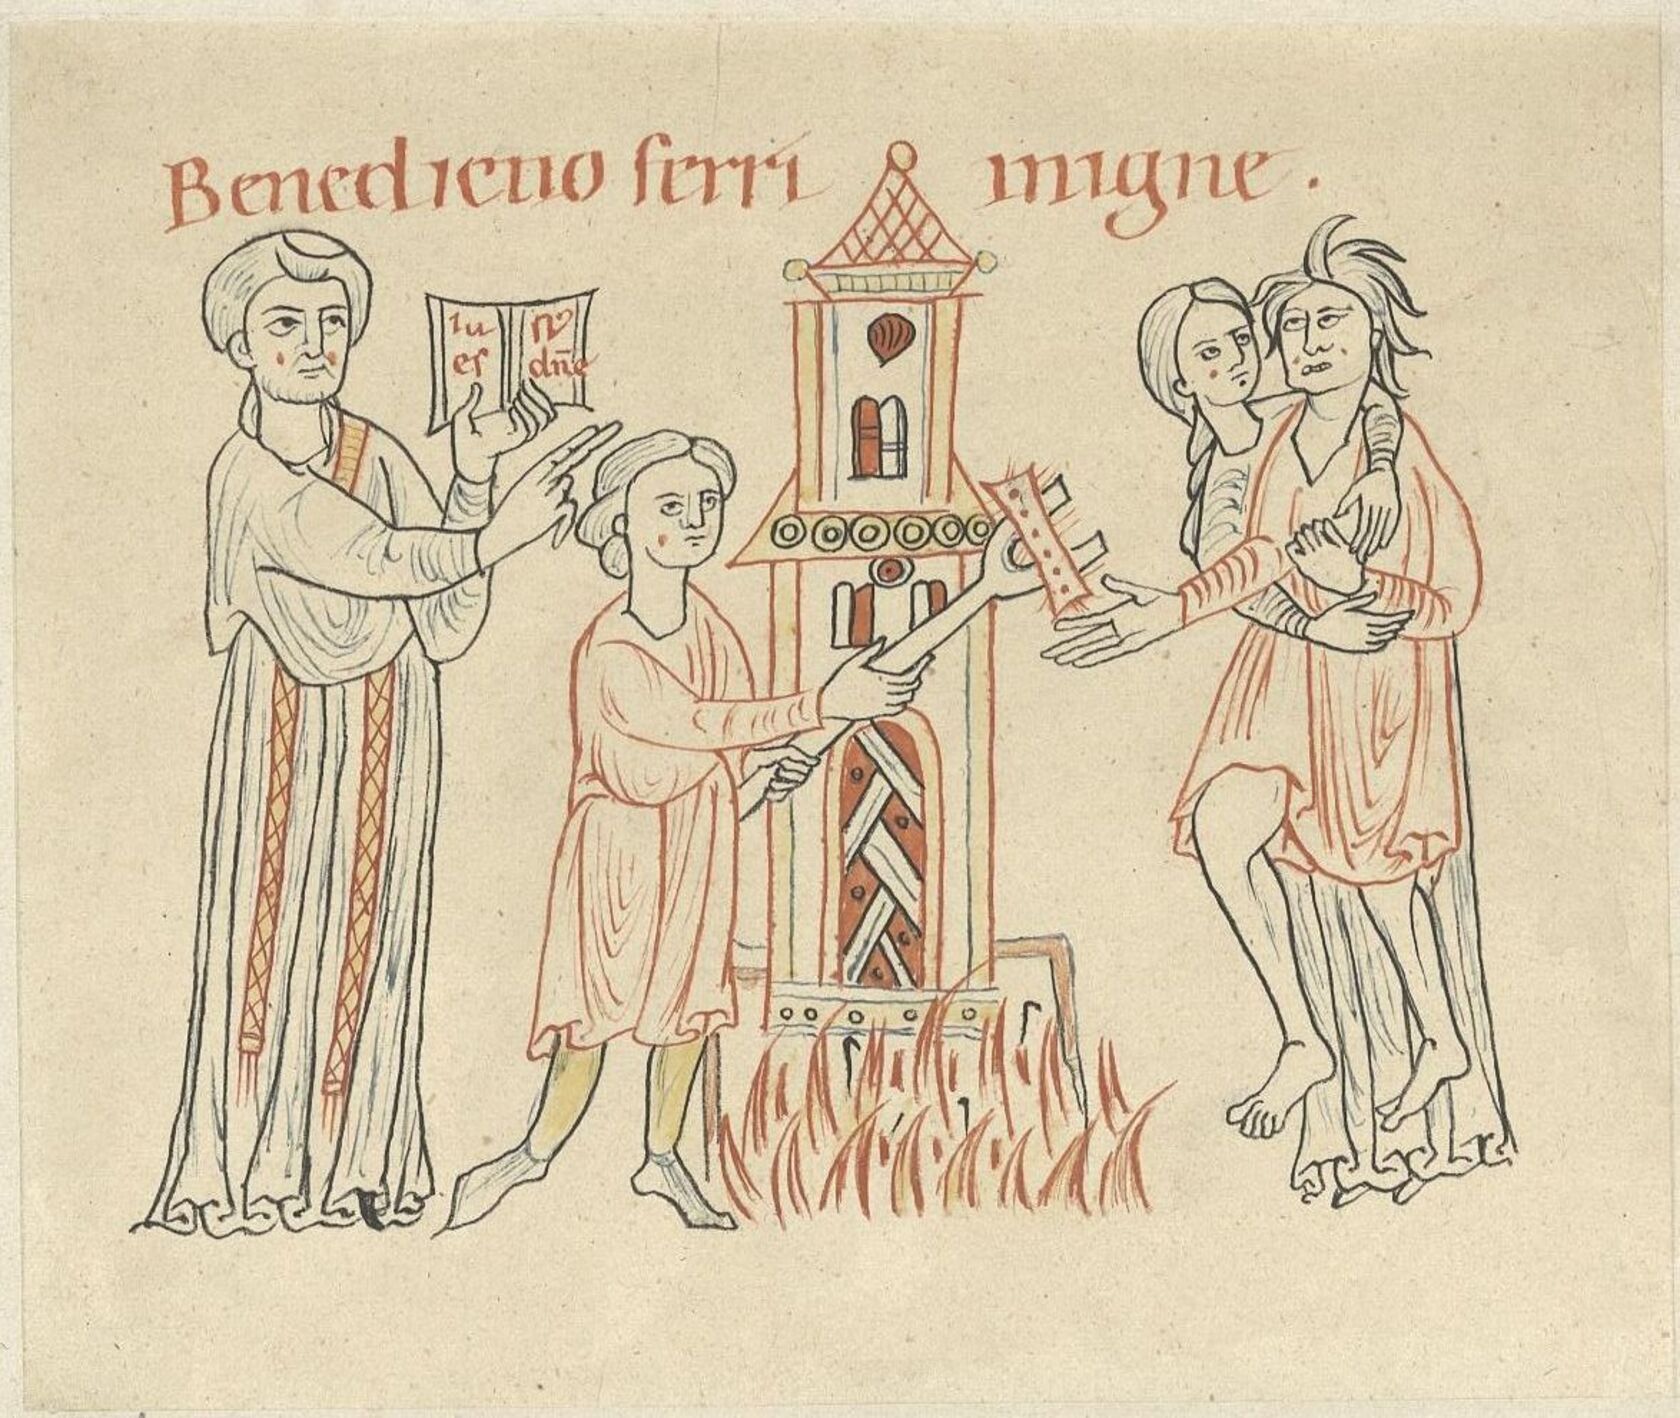 Benedictio ferri inigne.
Iu
es
dñe